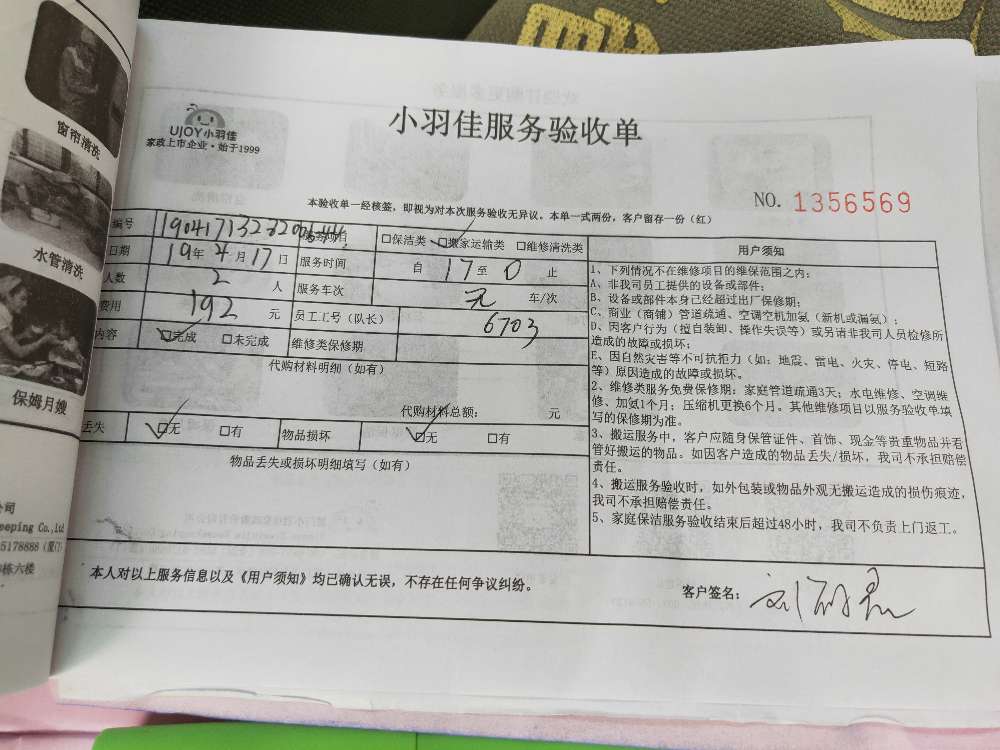 窗帘清洗
水管清洗
保姆月嫂
公司
eeping Co.,ltd
5178888（厦门）
栋六楼
UJOY小羽佳
家政上市企业·始于1999
小羽佳服务验收单
NO. 1356569
本验收单一经核签，即视为对本次服务验收无异议。本单一式两份，客户留存一份（红）
编号
服务项目 □保洁类 □搬家运输类 □维修清洗类
日期 19年4月17日 服务时间 自17至0止
人数 2人 服务车次 元 车/次
费用 192元 员工工号（队长） 6703
内容 □完成 □未完成 维修类保修期
代购材料明细（如有）
代购材料总额： 元
丢失 □无 □有 物品损坏 □无 □有
物品丢失或损坏明细填写（如有）
用户须知
1、下列情况不在维修项目的维保范围之内：
A、非我司员工提供的设备或部件；
B、设备或部件本身已经超过出厂保修期；
C、商业（商铺）管道疏通、空调空机加氨（新机或漏氨）；
D、因客户行为（擅自装卸、操作失误等）或另请非我司人员检修所
造成的故障或损坏。
E、因自然灾害等不可抗拒力（如：地震、雷电、火灾、停电、短路
等）原因造成的故障或损坏。
2、维修类服务免费保修期：家庭管道疏通3天；水电维修、空调维
修、加氨1个月；压缩机更换6个月。其他维修项目以服务验收单填
写的保修期为准。
3、搬运服务中，客户应随身保管证件、首饰、现金等贵重物品并看
管好搬运的物品。如因客户造成的物品丢失/损坏，我司不承担赔偿
责任。
4、搬运服务验收时，如外包装或物品外观无搬运造成的损伤痕迹，
我司不承担赔偿责任。
5、家庭保洁服务验收结束后超过48小时，我司不负责上门返工。
本人对以上服务信息以及《用户须知》均已确认无误，不存在任何争议纠纷。
客户签名：